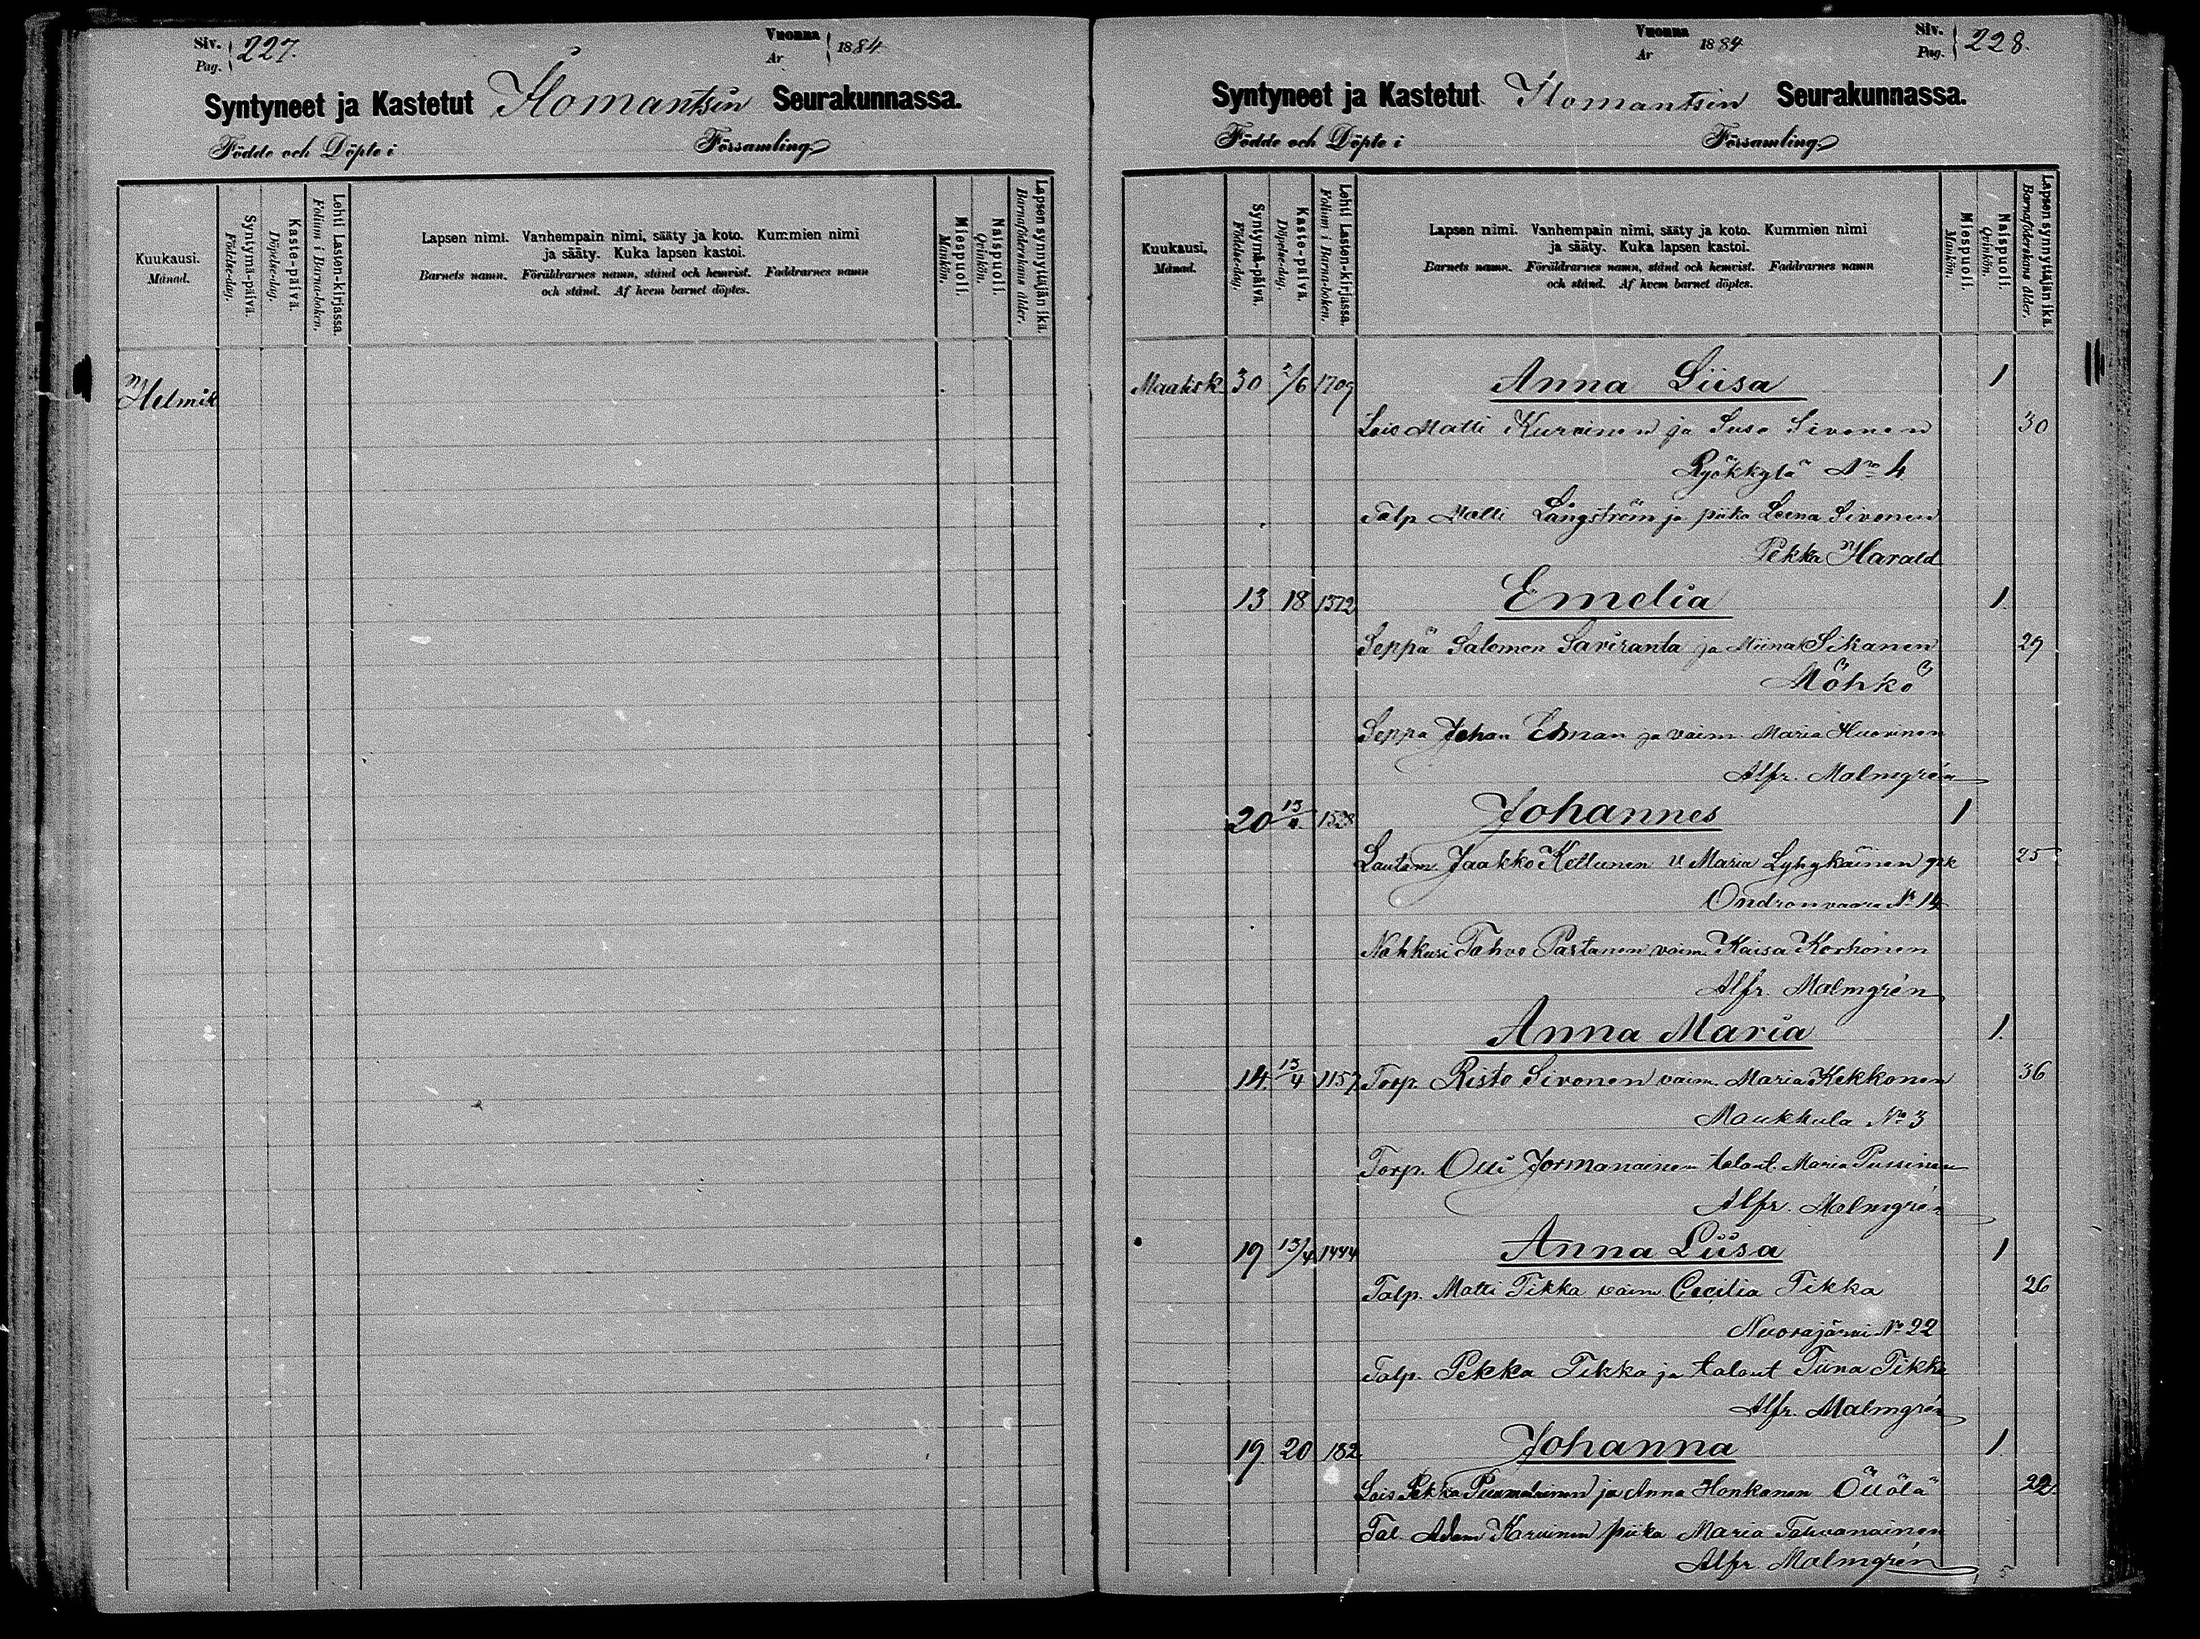 Siv. Pag. 227.
Vuonna År 1884
Syntyneet ja Kastetut Ilomantsin Seurakunnassa.
Födde och Döpte i Församling
Kuukausi. Månad.
Syntymä-päivä. Födelse-dag.
Kaste-päivä. Döpelse-dag.
Lehti Lasten-kirjassa. Folium i Barna-boken.
Lapsen nimi. Vanhempain nimi, sääty ja koto. Kummien nimi
ja sääty. Kuka lapsen kastoi.
Barnets namn. Föräldrarnes namn, stånd och hemvist. Faddrarnes namn
och stånd. Af hvem barnet döptes.
Miespuoli. Mankön.
Naispuoli. Qvinkön.
Lapsen synnyttäjän ikä. Barnaföderskans ålder.
Helmik
Vuonna År 1884
Siv. Pag. 228.
Syntyneet ja Kastetut Ilomantsin Seurakunnassa.
Födde och Döpte i Församling
Kuukausi. Månad.
Syntymä-päivä. Födelse-dag.
Kaste-päivä. Döpelse-dag.
Lehti Lasten-kirjassa. Folium i Barna-boken.
Lapsen nimi. Vanhempain nimi, sääty ja koto. Kummien nimi
ja sääty. Kuka lapsen kastoi.
Barnets namn. Föräldrarnes namn, stånd och hemvist. Faddrarnes namn
och stånd. Af hvem barnet döptes.
Miespuoli. Mankön.
Naispuoli. Qvinkön.
Lapsen synnyttäjän ikä. Barnaföderskans ålder.
Maalisk 30 2/6 1709 Anna Liisa 1
Lois Matti Kurvinen ja Suso Sivonen 30
Ryökkylä No 4
Talp Matti Långström ja piika Leena Sivonen
Pekka Harald
13 18 1372 Emelia 1.
Seppä Salomon Saviranta ja Miina Sikanen 29
Möhkö
Seppä Johan Edman ja vaim Maria Huovinen
Alfr. Malmgrén
20 13/4 1528 Johannes 1
Lautam. Jaakko Kettunen v. Maria Lyhykäinen grk 25
Ondronvaara No 14
Nahkuri Tahvo Partanen vaim. Kaisa Korhonen
Alfr. Malmgrén
Anna Maria 1.
14. 13/4 1157 Torp. Risto Sivonen vaim. Maria Kekkonen 36
Maukkula No 3
Torp. Olli Jormanainen talont. Maria Pussinen
Alfr. Malmgrén
19 13/4 1444 Anna Liisa 1
Talp. Matti Tikka vaim. Cecilia Tikka 26
Nuorajärvi No 22
Talp. Pekka Tikka ja talont Tiina Tikka
Alfr. Malmgrén
19 20 182 Johanna 1.
Lois Pekka Puumalainen ja Anna Honkanen Öllölä 22
Tal. Adam Karvinen piika Maria Tahvanainen
Alfr. Malmgrén
1 5